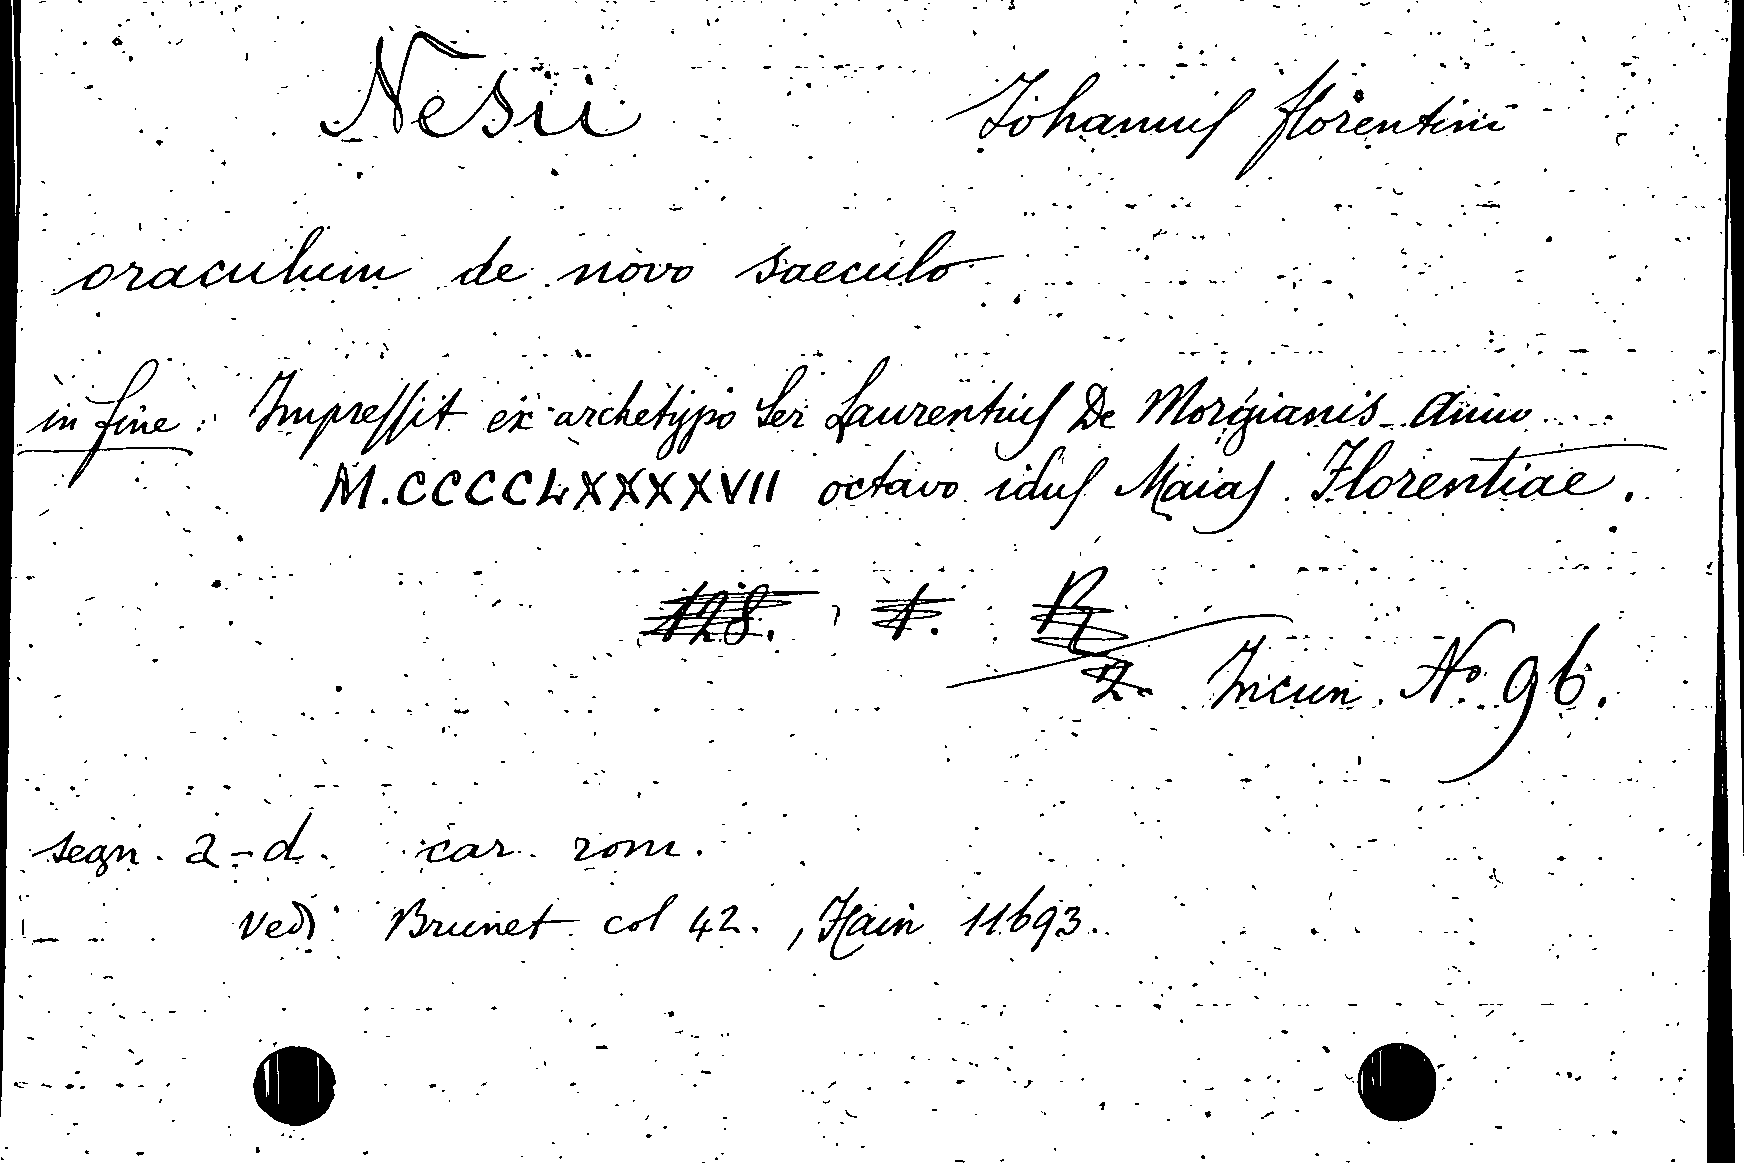 Nesii Johannis florentini
oraculum de novo saeculo
in fine: Impressit ex archetypo Ser Laurentius De Morgianis Anno
M.CCCCLXXXXVII octavo idus Maias Florentiae.
128. 1. B
2. Incun. No 96.
segn. a-d. car. rom.
vedi Brunet col 42., Hain 11693.